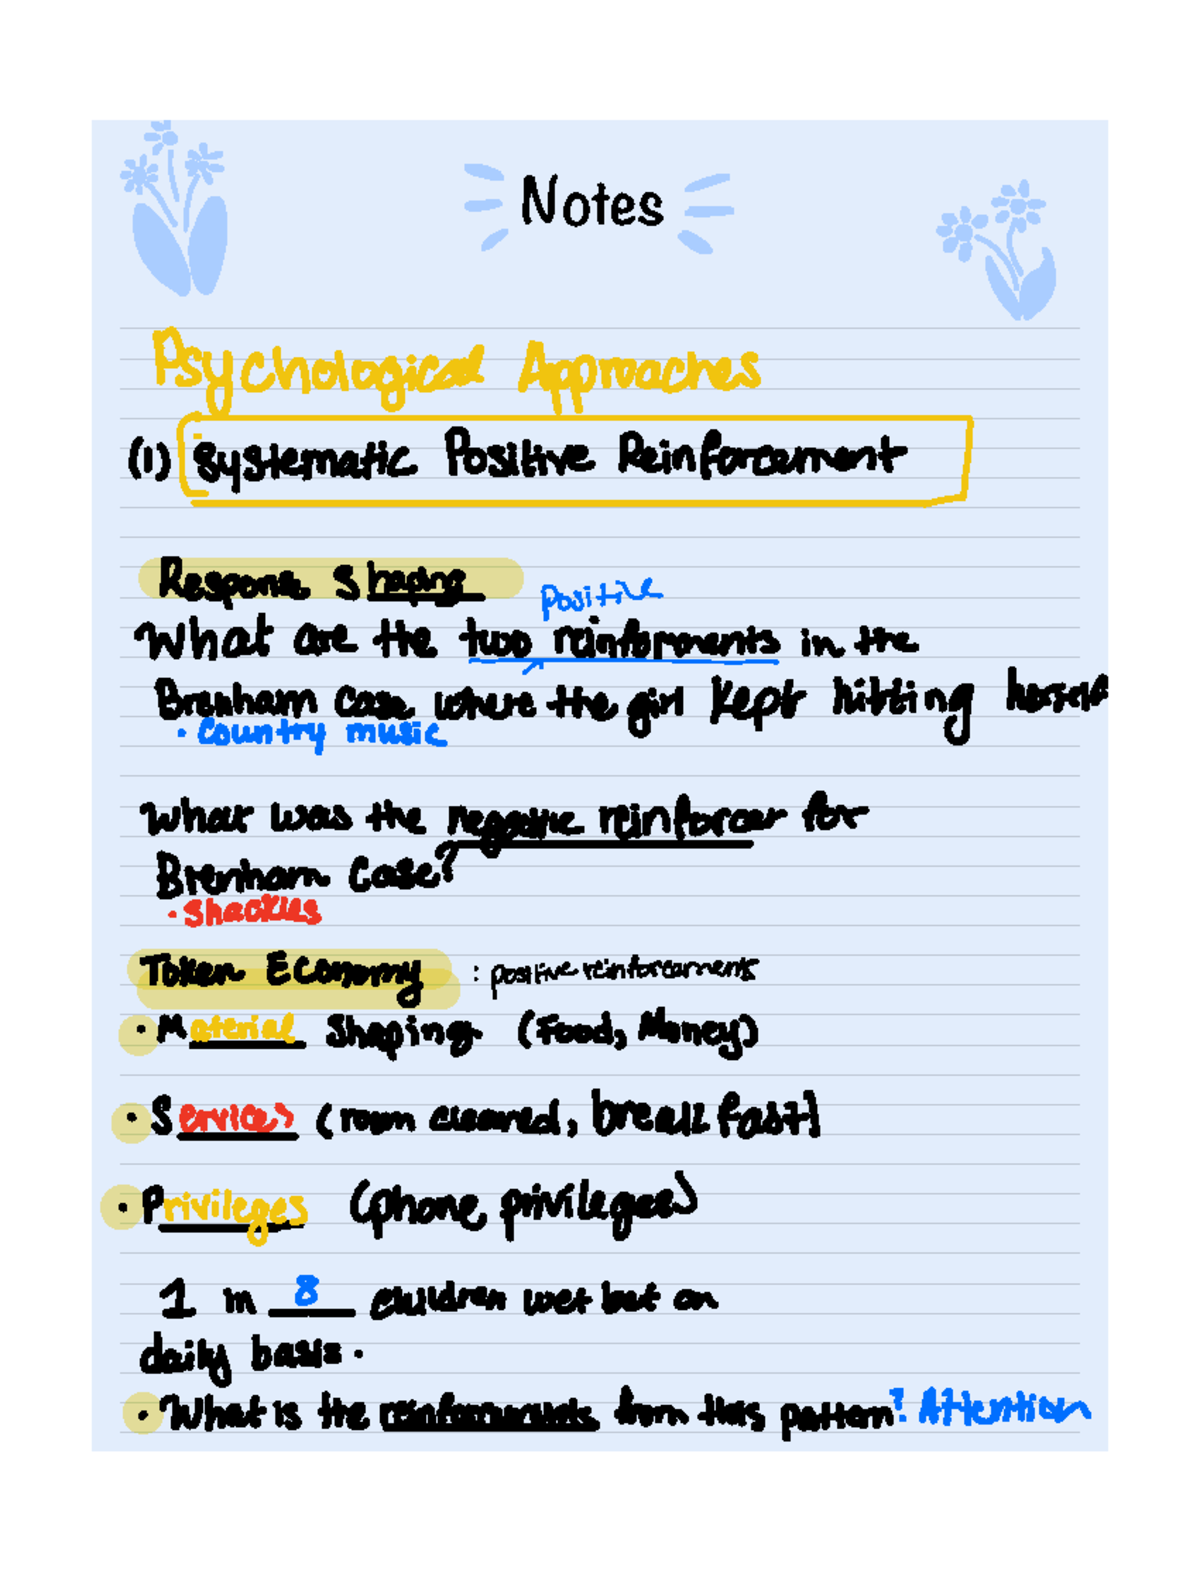 Notes
Psychological Approaches
(1) Systematic Positive Reinforcement
Response Shaping
positive
What are the two reinforments in the
Brenham Case where the girl kept hitting herself
• country music
What was the negative reinforcer for
Brenham Case?
• Shackles
Token Economy : positive reinforcements
• Material Shaping (Food, Money)
• Services (room cleaned, breakfast)
• Privileges (phone privileges)
1 in 8 children wet bet on
daily basis.
• What is the reinforcements from this pattern? Attention